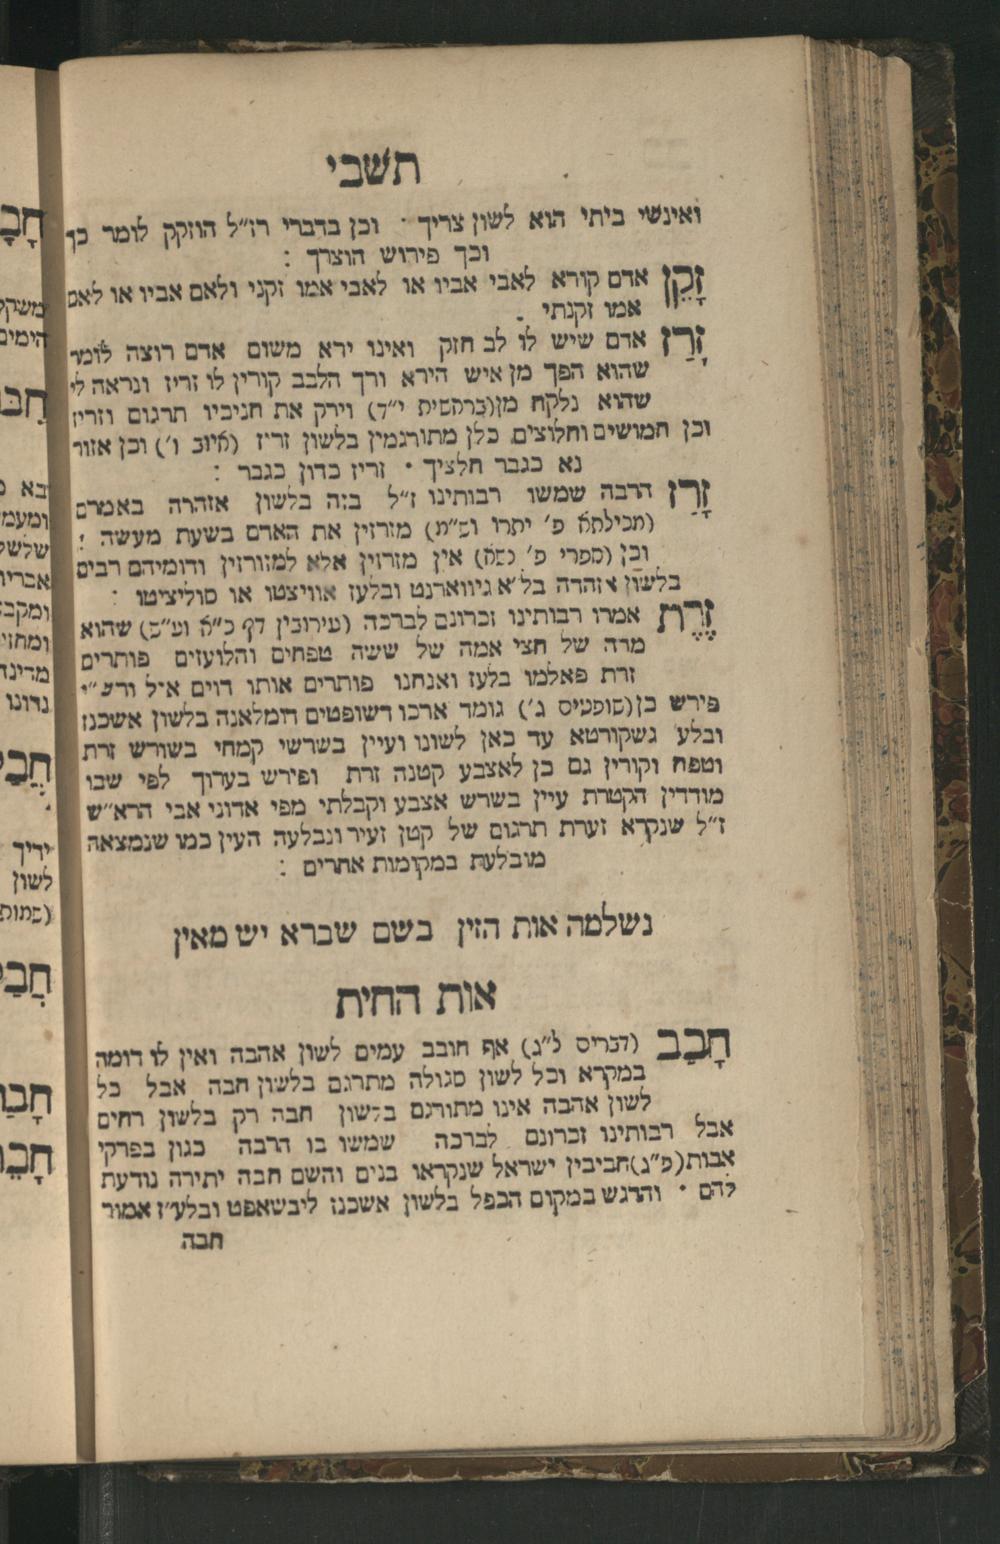 תשבי
ואינשי ביתי הוא לשון צריך · וכן בדברי רז״ל הוזקק לומר כך
וכך פירוש הוצרך :
זָקֵן אדם קורא לאבי אביו או לאבי אמו זקני ולאם אביו או לאם
אמו זקנתי .
זָרַז אדם שיש לו לב חזק ואינו ירא משום אדם רוצה לומר
שהוא הפך מן איש הירא ורך הלבב קורין לו זריז ונראה לי
שהוא נלקח מן (ברחשית י״ד) וירק את חניכיו תרגום וזריז
וכן חמושים וחלוצים כלן מתורגמין בלשון זריז (איוב ו') וכן אזור
נא כגבר חלציך · זריז כדון כגבר :
זָרַז הרבה שמשו רבותינו ז״ל בזה בלשון אזהרה באמרם
(מכילתא פ' יתרו וש״מ) מזרזין את האדם בשעת מעשה :
וכן (ספרי פ' נשא) אין מזרזין אלא למזורזין ודומיהם רבים
בלשון אזהרה בל״א גיווארנט ובלעז אוויצטו או סוליציטו :
זֶרֶת אמרו רבותינו זכרונם לברכה (עירובין דף כ״א וע״ש) שהוא
מדה של חצי אמה של ששה טפחים והלועזים פותרים
זרת פאלמו בלעז ואנחנו פותרים אותו דוים איל ורש״י
פירש כן (שופטים ג') גומד ארכו דשופטים דומלאנה בלשון אשכנז
ובלע' גשקורטא עד כאן לשונו ועיין בשרשי קמחי בשורש זרת
וטפח וקורין גם כן לאצבע קטנה זרת ופירש בערוך לפי שבו
מודדין הקטרת עיין בשרש אצבע וקבלתי מפי אדוני אבי הרא״ש
ז״ל שנקרא זערת תרגום של קטן זעיר ונבלעה העין כמו שנמצאה
מובלעת במקומות אחרים :
נשלמה אות הזין בשם שברא יש מאין
אות החית
חָבַב (דברים ל״ג) אף חובב עמים לשון אהבה ואין לו דומה
במקרא וכל לשון סגולה מתרגם בלשון חבה אבל כל
לשון אהבה אינו מתורגם בלשון חבה רק בלשון רחים
אבל רבותינו זכרונם לברכה שמשו בו הרבה כגון בפרקי
אבות (פ״ג) חביבין ישראל שנקראו בנים והשם חבה יתירה נודעת
להם · והדגש במקום הכפל בלשון אשכנז ליבשאפט ובלע״ז אמור
חבה